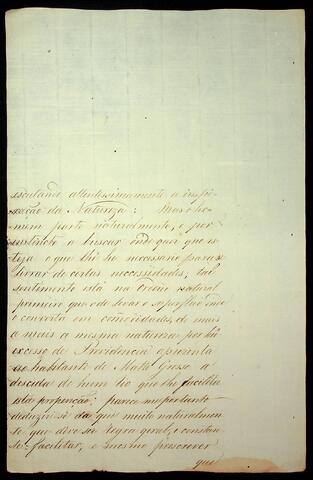 escutando attentissimamente a inspi-
ração da Natureza: Mas o ho-
mem parte naturalmente, e por
instincto a buscar onde quer que es-
teja o que lhe he necessario para se
livrar de certas necessidades; tal
sentimento está na ordem natural
primeiro que o de levar o superfluo
e converta em commodidades, de mais
a mais a mesma natureza por hũ
excesso de Providencia apresenta
ao habitante de Mato Grosso a
descida de hum Rio que lhe facilita
esta propenção; parece-me portanto
deduzir-se daqui muito naturalmen-
te que deve ser regra geral, e constan-
te facilitar, e mesmo prescrever
que